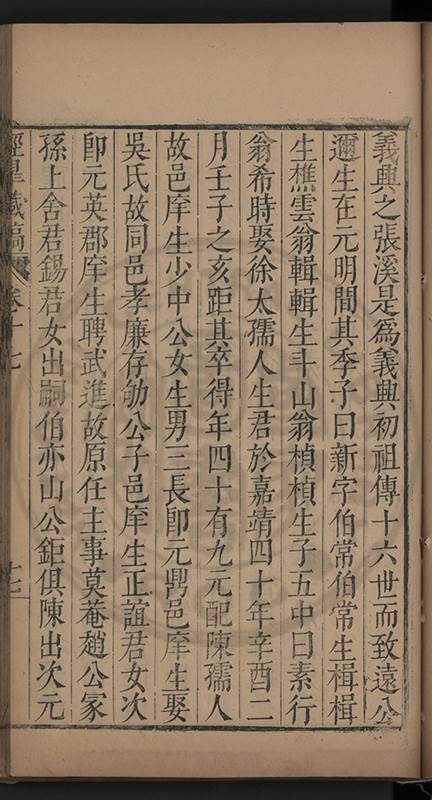 義興之張溪是爲義興初祖傳十六世而致遠公
邇生在元明間其季子曰新字伯常伯常生楫楫
生樵雲翁輯輯生斗山翁楨楨生子五中曰素行
翁希時娶徐太孺人生君於嘉靖四十年辛酉二
月壬子之亥距其卒得年四十有九元配陳孺人
故邑庠生少中公女生男三長卽元鼎邑庠生娶
吳氏故同邑孝廉存劬公子邑庠生正誼君女次
卽元英郡庠生聘武進故原任主事莫菴趙公冢
孫上舍君錫君女出嗣伯亦山公鉅俱陳出次元
涇臯藏稿 卷十七 十二